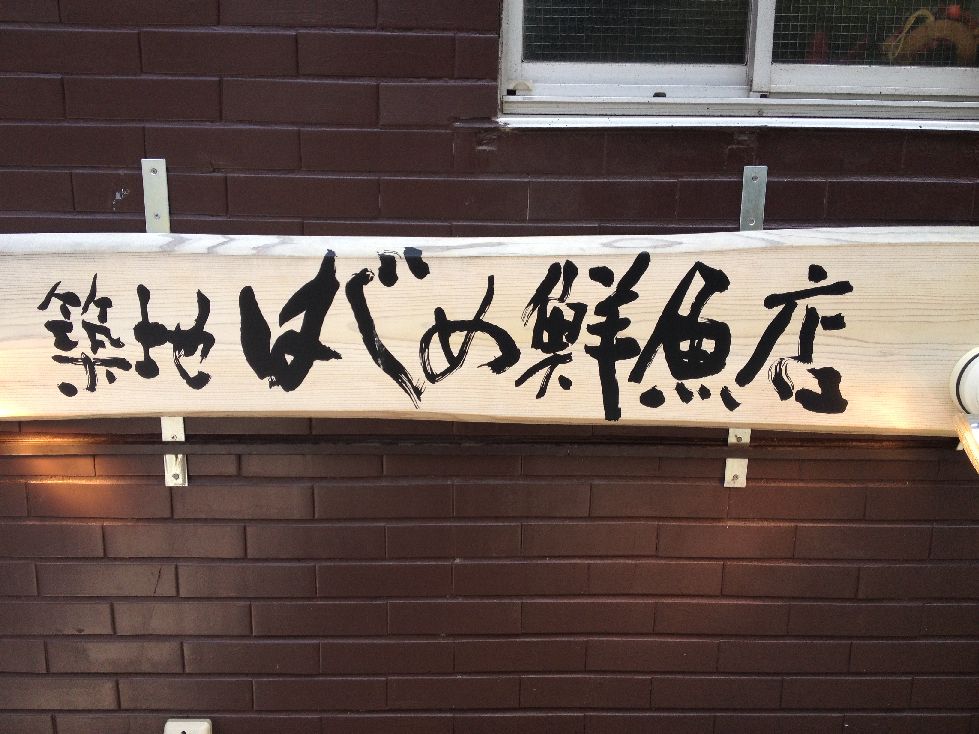 築地はじめ鮮魚店